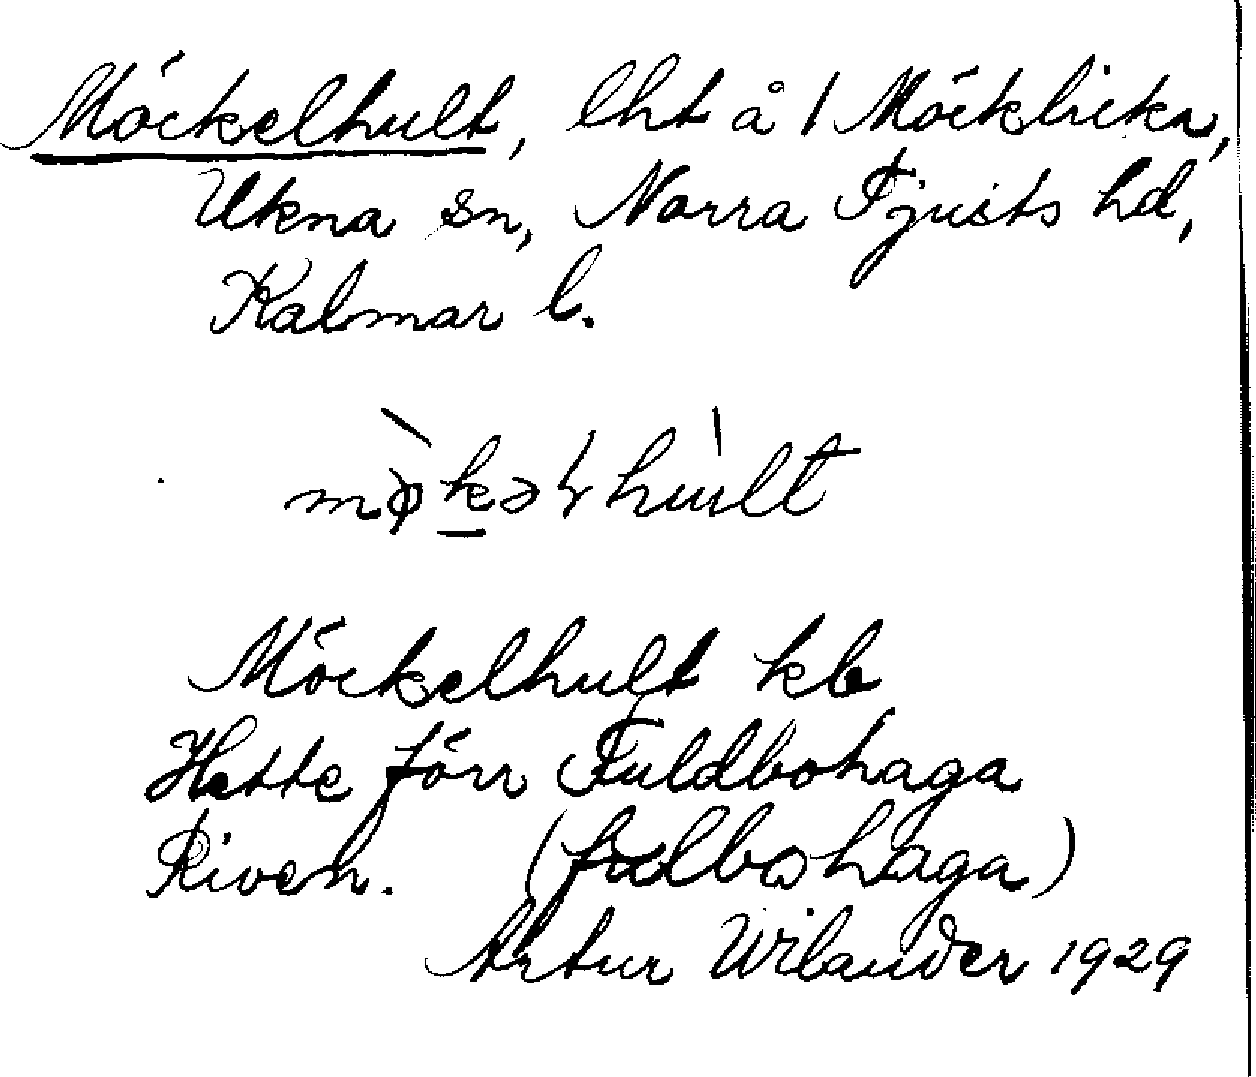 Möckelhult, lht å 1 Möcklicka,
Ukna sn, Norra Tjusts hd,
Kalmar l.
mø̀kəlhùlt
Möckelhult kb
Hette förr Fuldbohaga
Riven. (fulbohaga)
Artur Wilander 1929